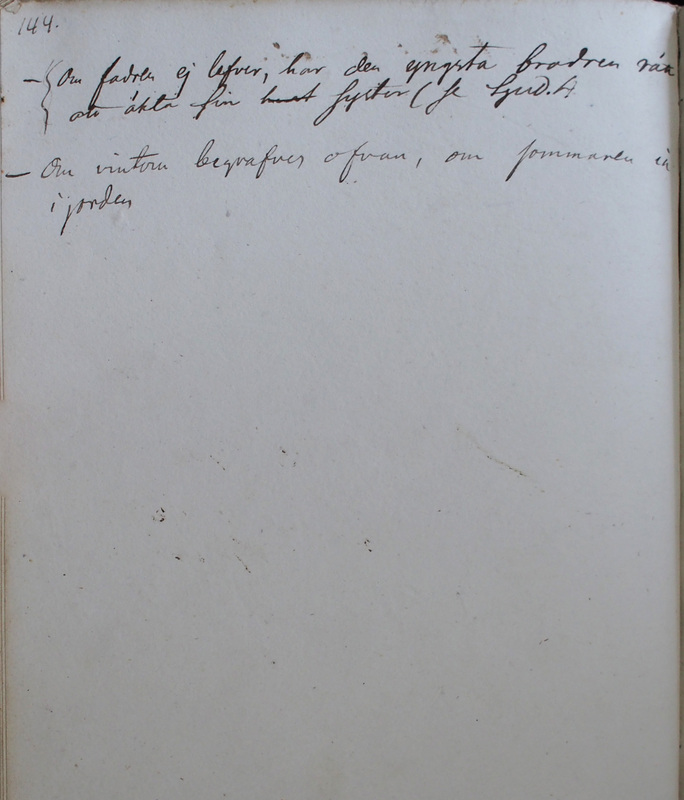 144.
– Om fadren ej lefver, har den yngsta brodren
att äkta sin syster (se Ljud. 4
– Om vintern begrafves ofvan, om sommaren
i jorden